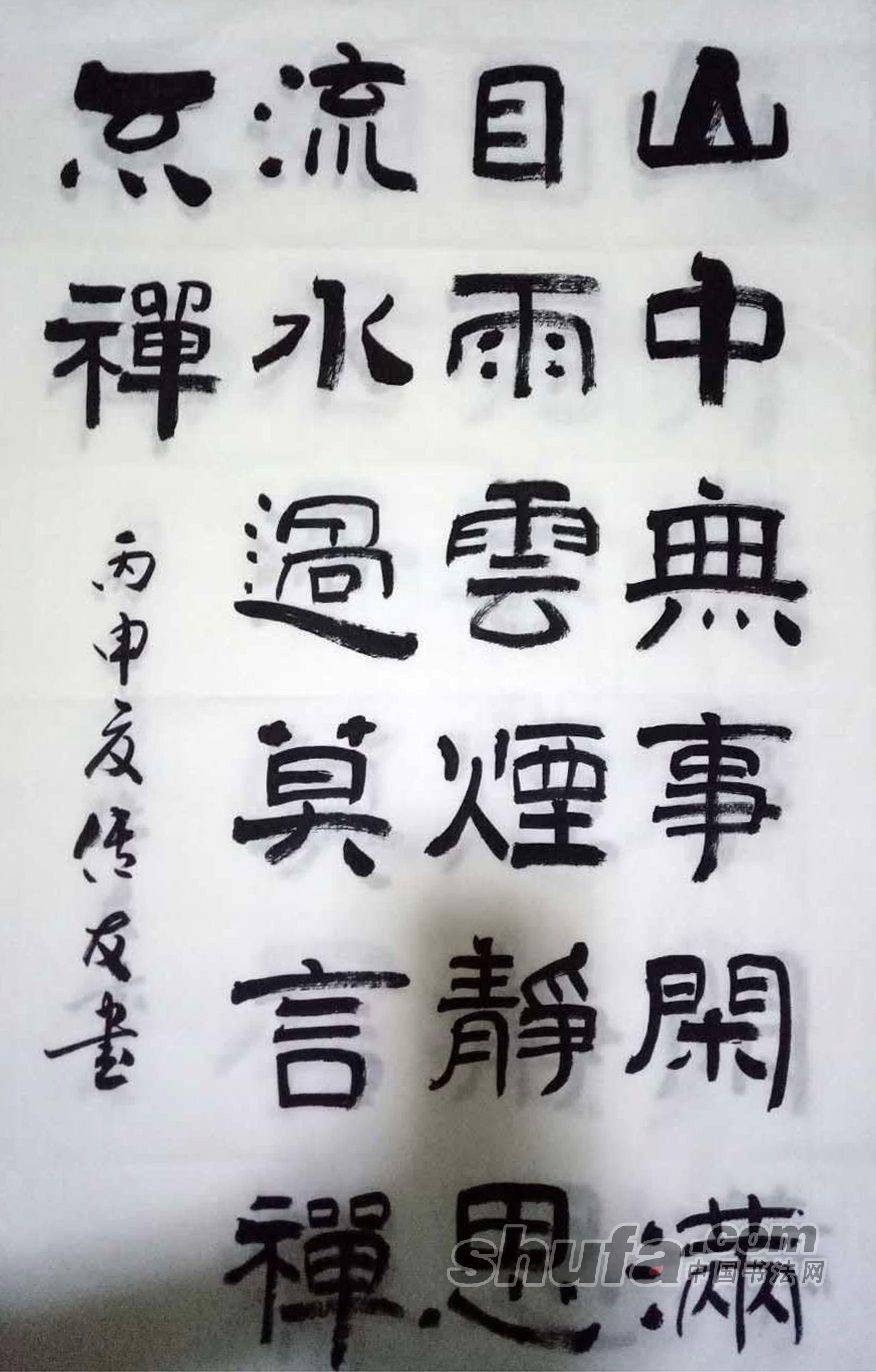 山中無事閑滿
目雨雲煙靜思
流水過莫言禪
禪
丙申夏传友書
shufa.com
中国书法网